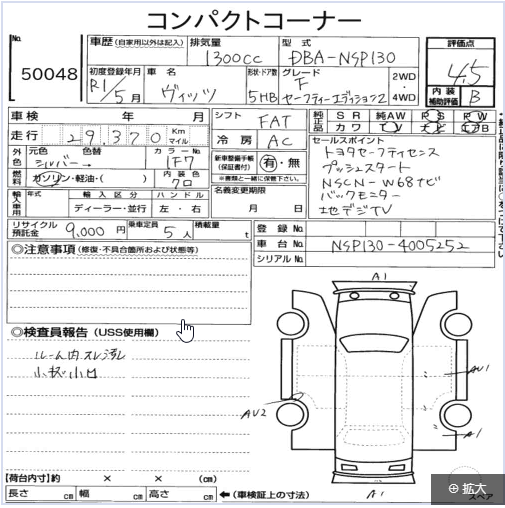 コンパクトコーナー
No.
50048
車歴 (自家用以外は記入)
排気量
1300cc
型式
DBA-NSP130
評価点
4.5
内装
補助評価
B
初度登録年月
R1/5月
車名
ヴィッツ
形状・ドア数
5HB
グレード
F
セーフティーエディション2
2WD
・
4WD
車検 年 月
シフト
FAT
純正品
SR 純AW PS PW
カワ TV ナビ エアB
走行 29,370 Km
マイル
冷房
AC
セールスポイント
トヨタセーフティセンス
プッシュスタート
NSCN-W68ナビ
バックモニター
地デジTV
外色
元色 色替
シルバー→
カラーNo.
1F7
新車整備手帳
(保証書付)
有・無
※書類と一緒に保管下さい。
燃料
ガソリン・軽油・( )
内装色
クロ
名義変更期限
月 日
輸入車用
年式
輸入区分
ハンドル
ディーラー・並行
左・右
リサイクル
預託金
9,000円
乗車定員
5人
積載量
t
登録No.
車台No.
NSP130-4005252
シリアルNo.
◎注意事項 (修復・不具合箇所および状態等)
◎検査員報告 (USS使用欄)
ルーム内スレ汚レ
小キズ小凹
A1
AU1
AU2
A1
A1
【荷台内寸】約 × × (cm)
長さ cm 幅 cm 高さ cm
←(車検証上の寸法)
スペア
拡大